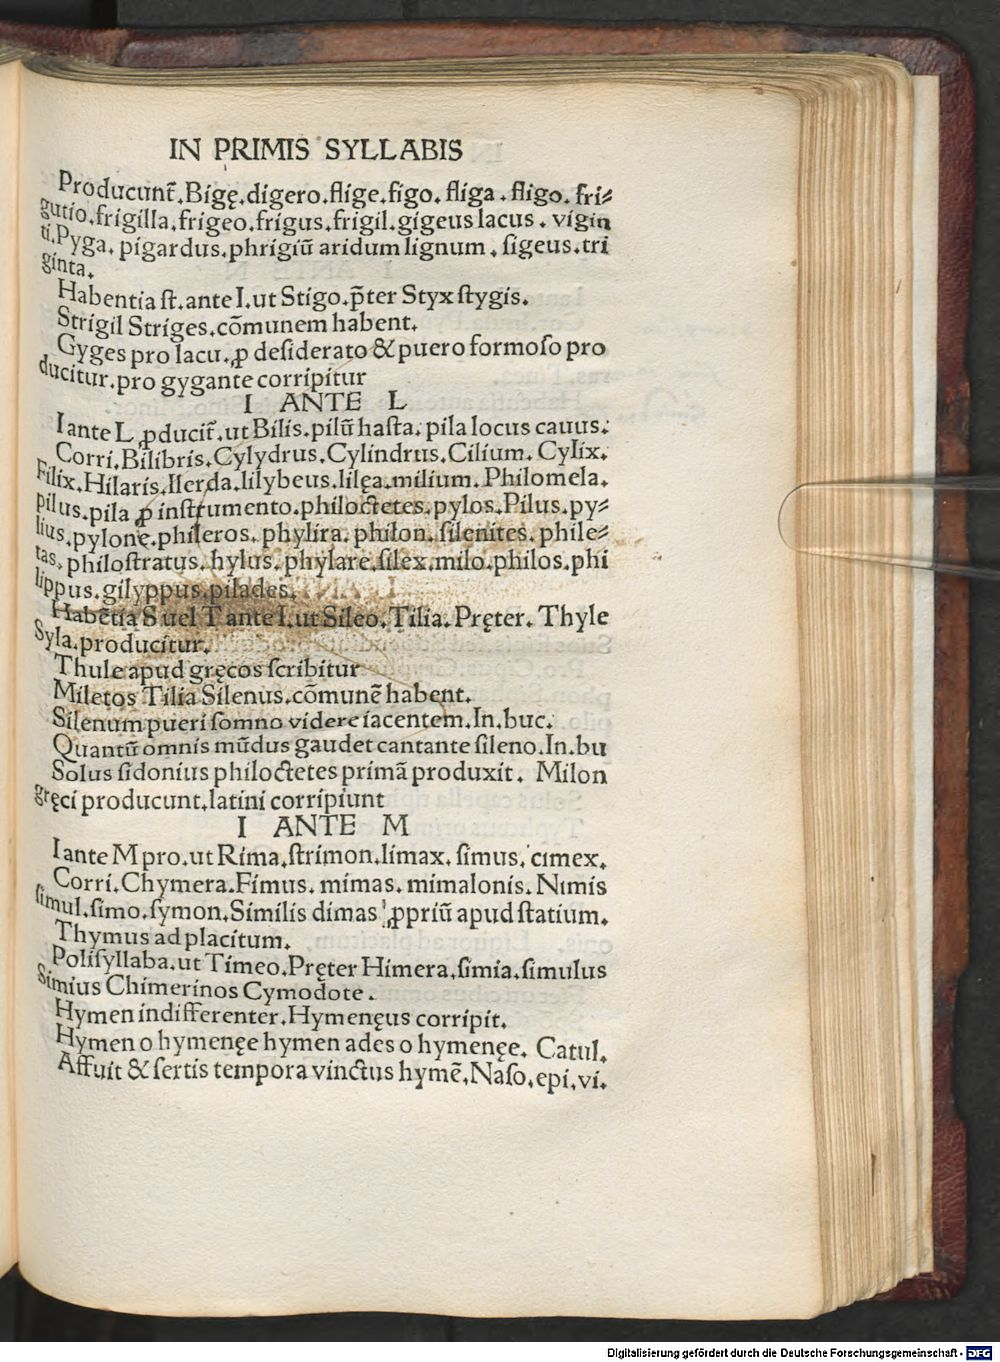 IN PRIMIS SYLLABIS
Producunt̃.Bigę.digero.flige.figo.fliga.fligo.fri⸗
gutio.frigilla.frigeo.frigus.frigil.gigeus lacus.vigin
ti.Pyga.pigardus.phrigiũ aridum lignum.ſigeus.tri
ginta.
Habentia ſt.ante I.ut Stigo.p̃ter Styx ſtygis.
Strigil Striges.cõmunem habent.
Gyges pro lacu.ꝓ deſiderato & puero formoſo pro
ducitur.pro gygante corripitur
I ANTE L
I ante L ꝓducit̃.ut Bilis.pilũ haſta.pila locus cauus.
Corri.Bilibris.Cylydrus.Cylindrus.Cilium.Cylix.
Filix.Hilaris.Ilerda.lilybeus.lilęa.milium.Philomela.
pilus.pila ꝓ inſtrumento.philoctetes.pylos.Pilus.py⸗
lius.pylone.phileros.phylira.philon.ſilenites.phile⸗
tas.philoſtratus.hylus.phylare.ſilex.milo.philos.phi
lippus.gilyppus.pilades.
Habẽtia S uel T ante I.ut Sileo.Tilia.Pręter. Thyle
Syla.producitur.
Thule apud gręcos ſcribitur
Miletos Tilia Silenus.cõmunẽ habent.
Silenum pueri ſomno videre iacentem.In.buc.
Quantũ omnis mũdus gaudet cantante ſileno.In.bu
Solus ſidonius philoctetes primã produxit. Milon
gręci producunt.latini corripiunt
I ANTE M
I ante M pro.ut Rima.ſtrimon.limax.ſimus.cimex.
Corri.Chymera.Fimus.mimas.mimalonis.Nimis
ſimul.ſimo.ſymon.Similis dimas ꝓpriũ apud ſtatium.
Thymus ad placitum.
Poliſyllaba.ut Timeo.Pręter Himera.ſimia.ſimulus
Simius Chimerinos Cymodote.
Hymen indifferenter.Hymenęus corripit.
Hymen o hymenęe hymen ades o hymenęe. Catul.
Affuit & ſertis tempora vinctus hymẽ.Naſo.epi.vi.
Digitalisierung gefördert durch die Deutsche Forschungsgemeinschaft - DFG